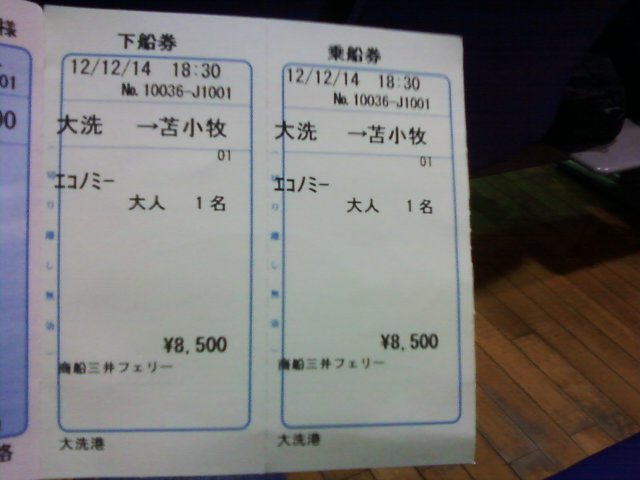 様
01
00
格
下船券
12/12/14 18:30
No. 10036-J1001
大洗 →苫小牧
01
エコノミー
大人 1名
¥8,500
商船三井フェリー
大洗港
切り離し無効
乗船券
12/12/14 18:30
No. 10036-J1001
大洗 →苫小牧
01
エコノミー
大人 1名
¥8,500
商船三井フェリー
大洗港
切り離し無効